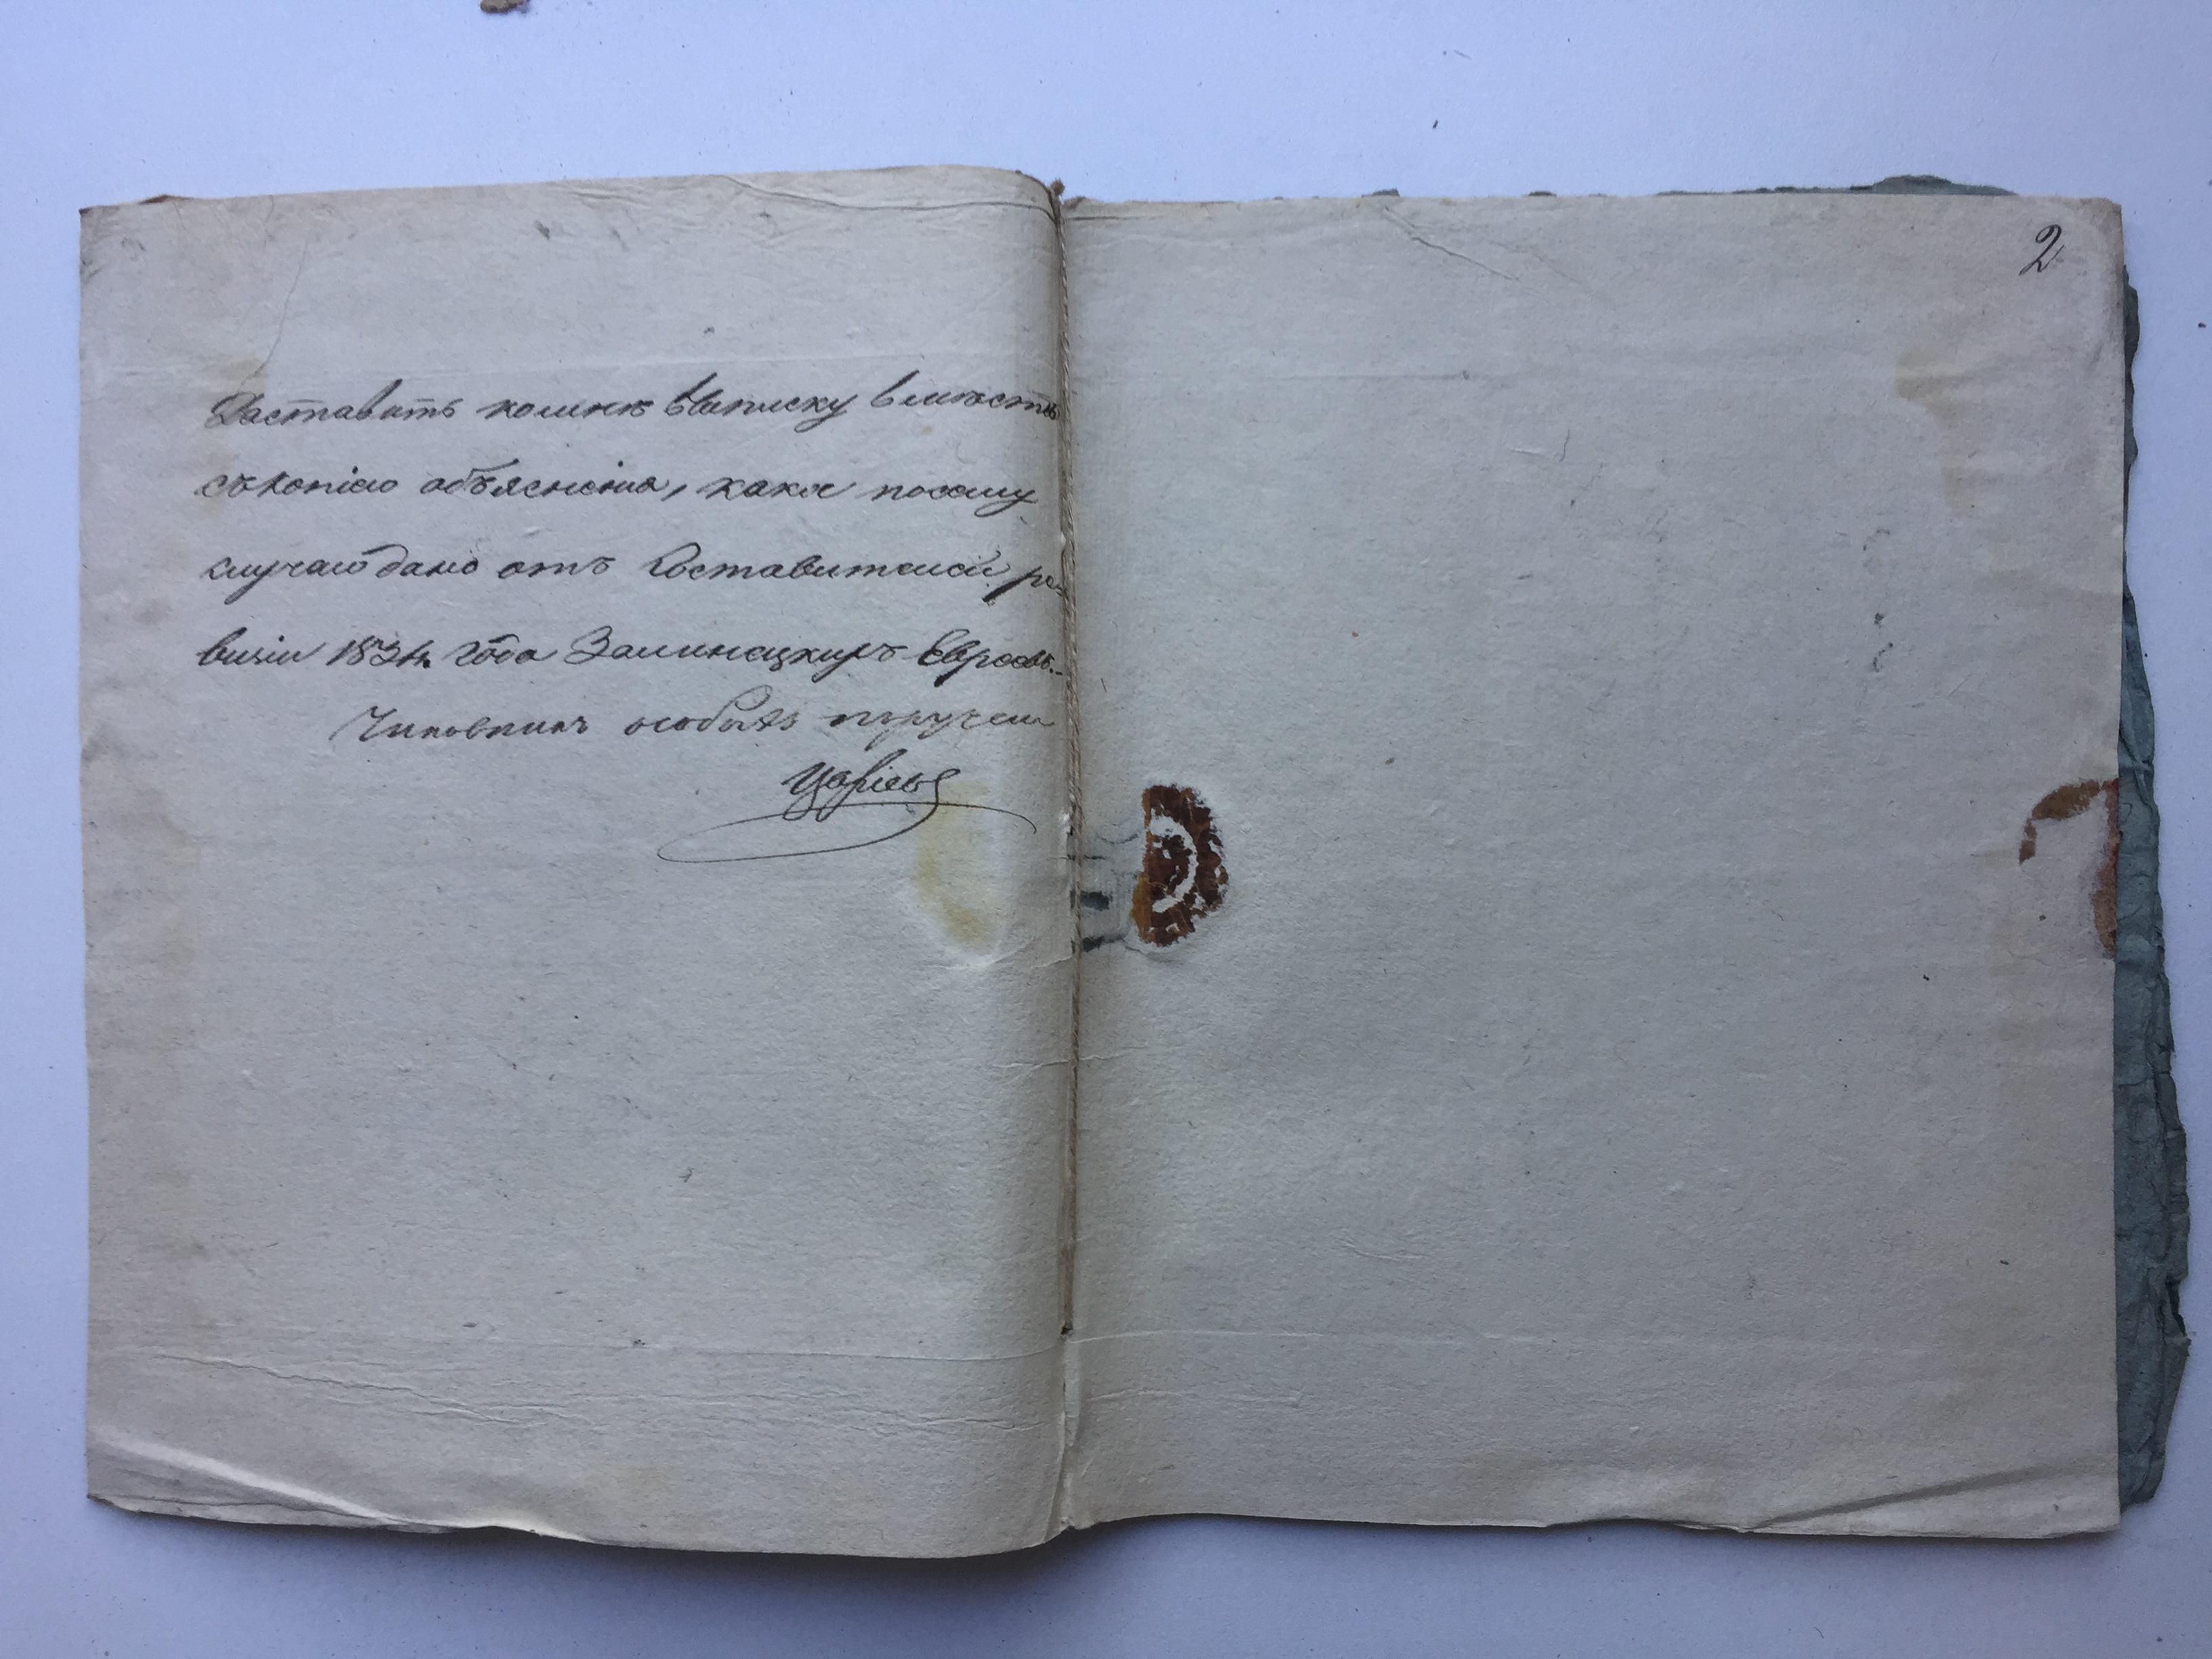 Доставить комнѣ выписку вместѣ
съ копiею объясненiя, какое посему
случаю дано отъ Составителей ре-
визiи 1834. года Залинецкихъ Евреевъ.-
Чиновникъ особыхъ поручен
2